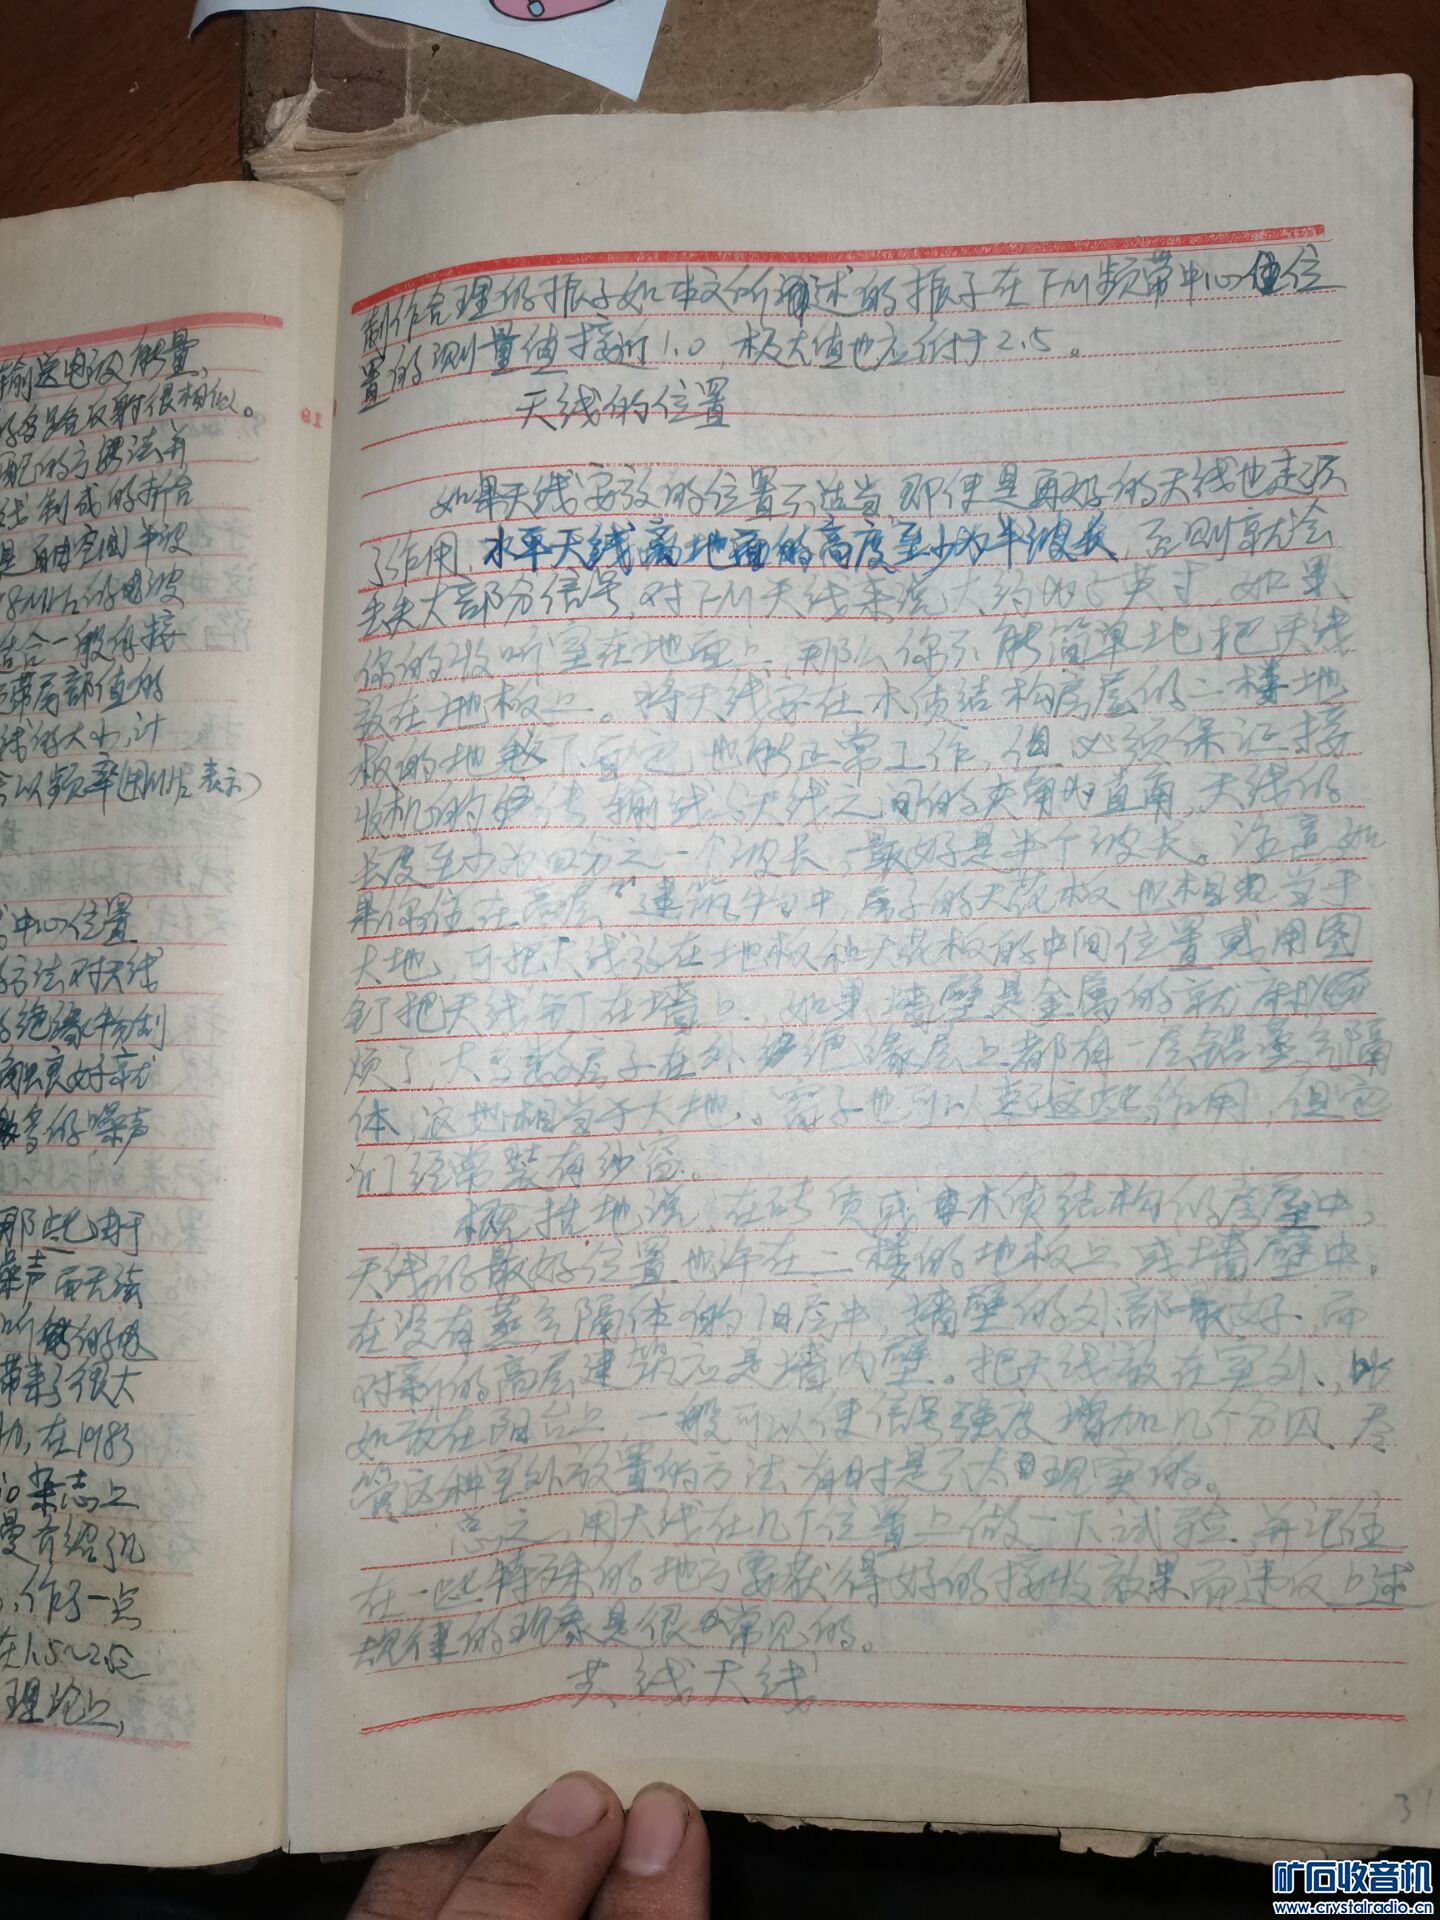 输送电波能量,
好多路反射很相似。
配的方法并
线制成的折合
是自由空间半波
结合一般保接
带局部值的
线的大小,计
以频率(用MHz表示)
中心位置
方法对天线
绝缘物刮
良好就
的噪声
那些由于
噪声而无法
带来了很大
助,在1983
杂志上
曼介绍了几
,作了一点
在1.5~2.5之
理论上,
制作合理的振子如本文所讲述的振子在FM频带中心位
置的测量值接近1.0,极大值也应低于2.5。
天线的位置
如果天线安放的位置不适当,即使是再好的天线也起不
了作用,水平天线离地面的高度至少为半波长,否则就会
丢失大部分信号,对FM天线来说大约为5英寸,如果
你的收听室在地面上,那么你不能简单地把天线
放在地板上。将天线安在木质结构房屋的二楼地
板的地毯下面,它也能正常工作,但必须保证接
收机的传输线与天线之间的夹角为直角,天线的
长度至少为四分之一个波长,最好是半个波长。注意如
果你住在高层建筑物中,房子的天花板也相当于
大地,可把天线放在地板和天花板的中间位置或用图
钉把天线钉在墙上,如果墙壁是金属的就麻
烦了,大多数房子在外绝缘层上都有一层铝蒸气隔
体,这也相当于大地。窗子也可以起到这些作用,但它
们经常装有纱窗。
概括地说,在砖质或木质结构的房屋中,
天线的最好位置也许在二楼的地板上或墙壁中。
在没有蒸气隔体的旧房中,墙壁的外部最好,而
对新的高层建筑应是墙内壁。把天线放在室外,比
如放在阳台上,一般可以使信号强度增加几个分贝,尽
管这种室外放置的方法有时是不太现实的。
总之,用天线在几个位置上做一下试验,并记住
在一些特殊的地方要获得好的接收效果而违反上述
规律的现象是很常见的。
共线天线
31
矿石收音机
www.crystalradio.cn